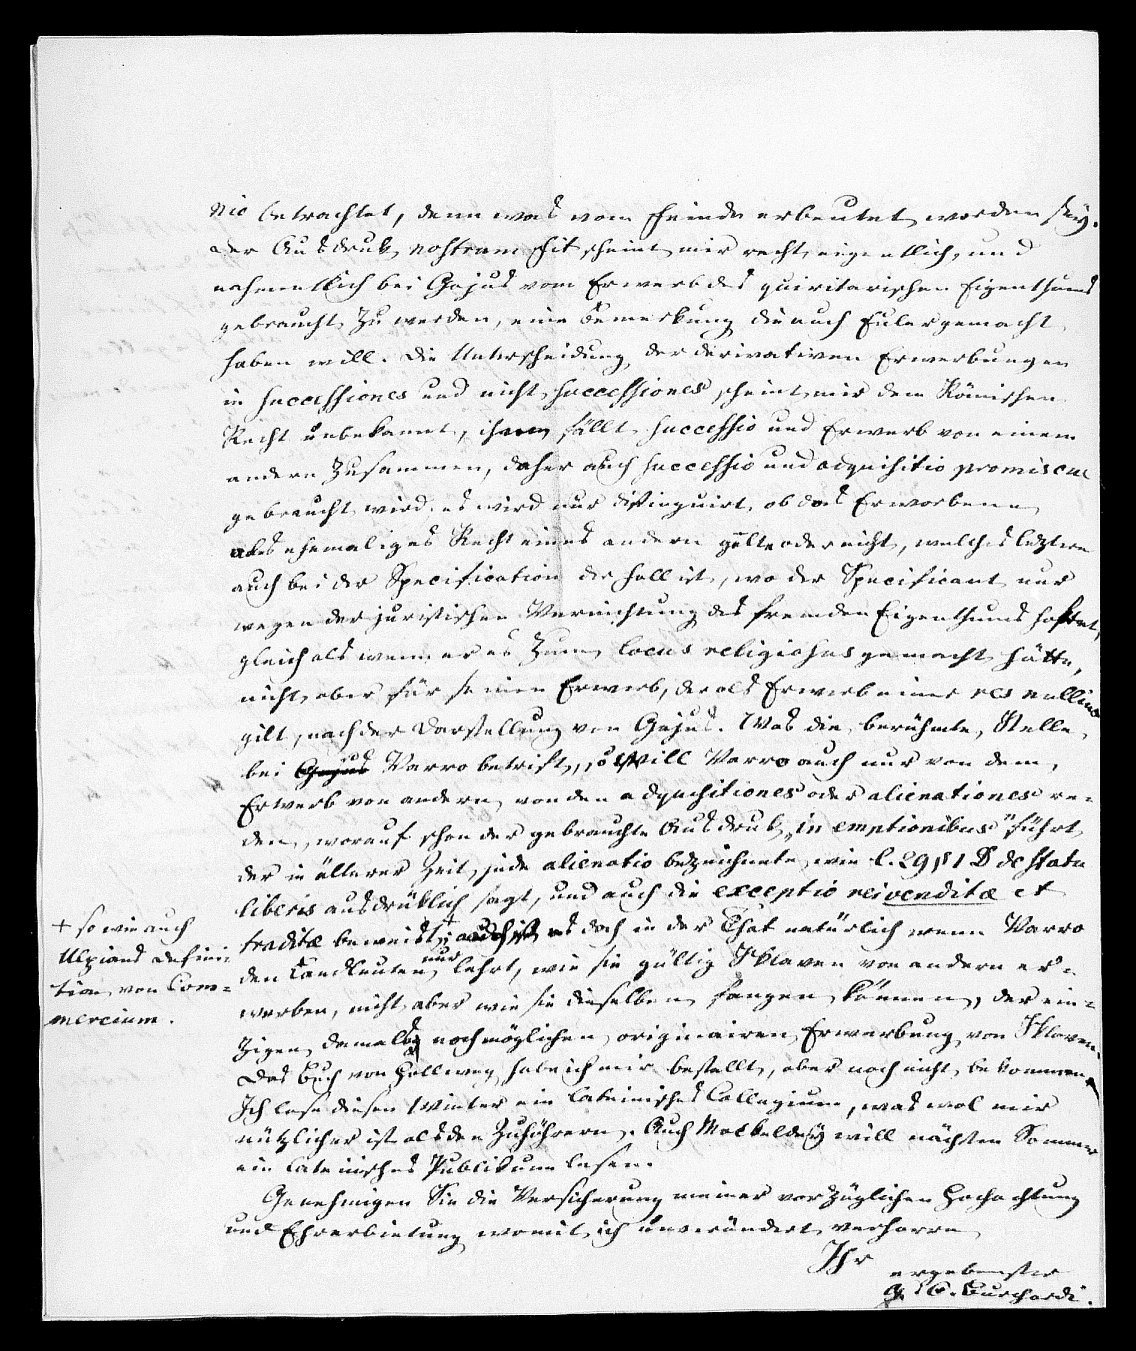 nie betrachtet, denn was vom Feinde erbeutet worden sey.
der Ausdruk nostrum fit scheint mir recht eigentlich, und
nahmentlich bei Gajus vom Erwerb des quiritarischen Eigenthums
gebraucht zu werden, eine Bemerkung die auch Euler gemacht
haben will. Die Unterscheidung der derivativen Erwerbungen
in successiones und nicht successiones scheint mir dem Römischen
Recht unbekannt, ihm fällt successio und Erwerb von einem
andern zusammen, daher auch successio und adquisitio promiscue
gebraucht wird. es wird nur distinguirt, ob das Erworbene
als ehemaliges Recht eines andern gelte oder nicht, welches leztere
auch bei der Specification der Fall ist, wo der Specificant nur
wegen der juristischen Vernichtung des fremden Eigenthums haftet,
gleich als wenn er es zum locus religiosus gemacht hätte,
nicht aber für seinen Erwerb, der als Erwerb einer res nullius
gilt, nach der Darstellung von Gajus. Was die berühmte Stelle
bei Varro betrift, so will Varro auch nur von dem
Erwerb von andern, von den adquisitiones oder alienationes re-
den, worauf schon der gebrauchte Ausdruk „in emptionibus" führt
der in älterer Zeit jede alienatio bezeichnete, wie l. 29 § 1 D de statu
liberis ausdrüklich sagt, und auch die exceptio rei venditæ et
traditæ beweist + es doch in der That natürlich wenn Varro
den Landleuten nur lehrt, wie sie gültig Sklaven von andern er-
werben, nicht aber wie sie dieselben fangen können, der ein-
zigen damals noch möglichen originairen Erwerbung von Sklaven.
+ so wie auch
Ulpians Defini-
tion von Com-
mercium.
Das Buch von Hollweg habe ich mir bestellt, aber noch nicht bekommen.
Ich lese diesen Winter ein lateinisches Collegium, was wol mir
nützlicher ist als den Zuhörern. Auch Mackeldey will nächsten Sommer
ein lateinisches Publikum lesen.
Genehmigen Sie die Versicherung meiner vorzüglichen Hochachtung
und Ehrerbietung womit ich unverändert verharre
Ihr
ergebenster
G. C. Burchardi.